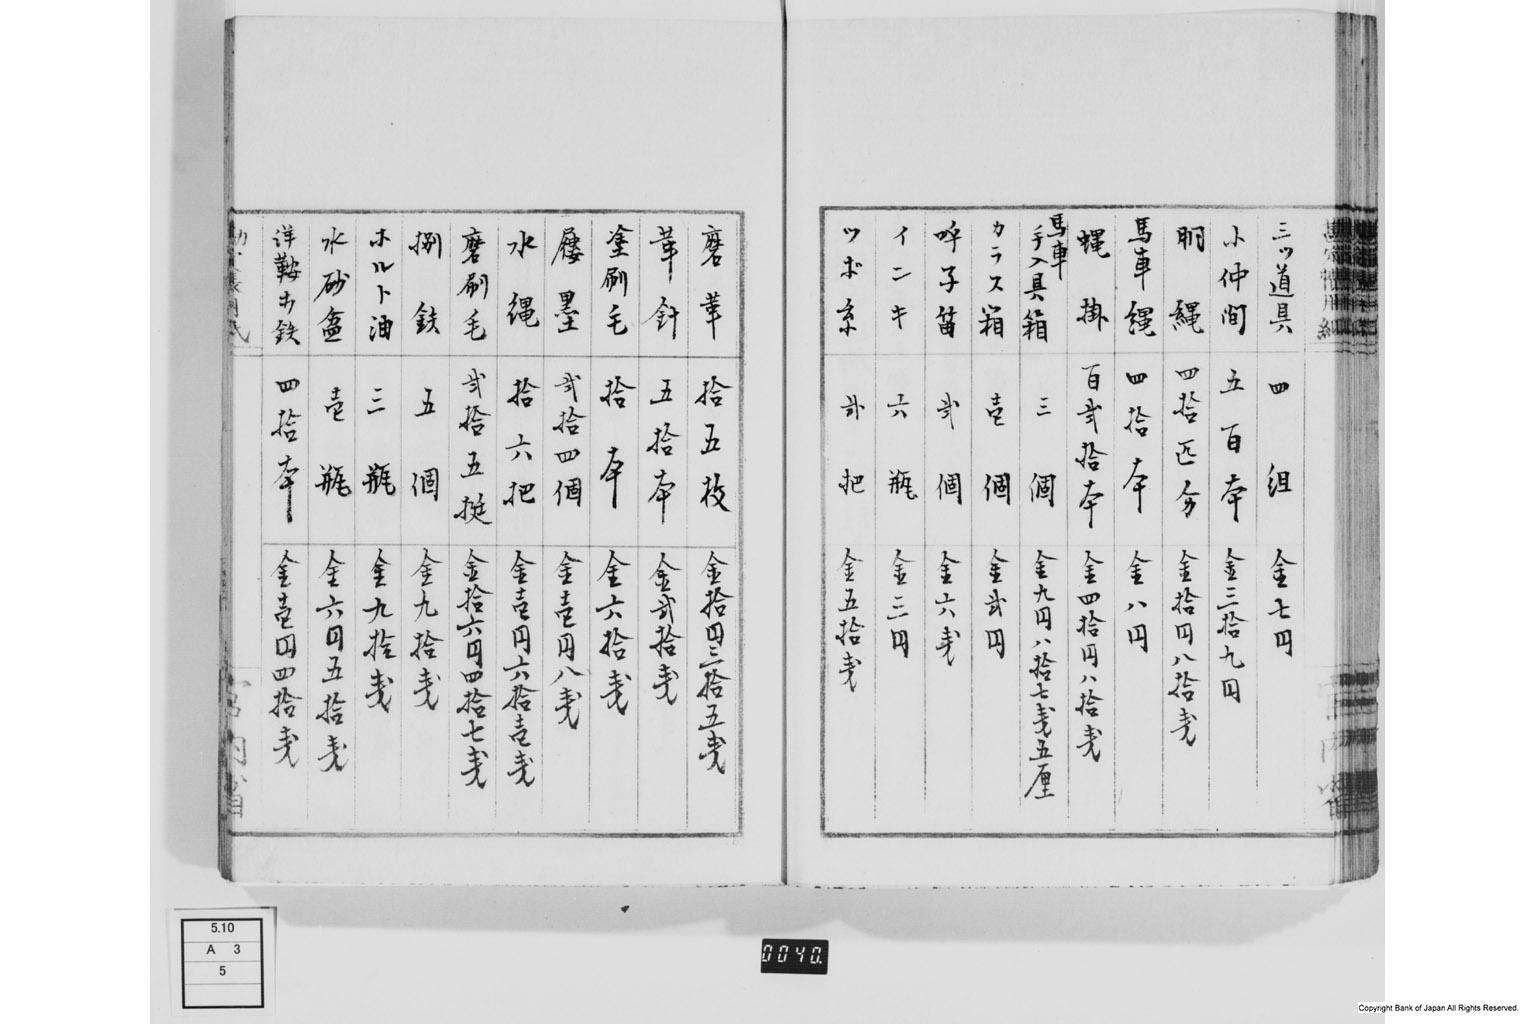 三ツ道具 四組 金七円
小仲間 五百本 金三拾九円
胴縄 四拾匹分 金拾円八拾銭
馬車縄 四拾本 金八円
蝿掛 百弐拾本 金四拾円八拾銭
馬車手入具箱 三個 金九円八拾七銭五厘
カラス箱 壱個 金弐円
呼子笛 弐個 金六銭
インキ 六瓶 金三円
ツボ糸 弐把 金五拾銭
磨革 拾五枚 金拾円三拾五銭
革針 五拾本 金弐拾銭
塗刷毛 拾本 金六拾銭
履墨 弐拾四個 金壱円八銭
水縄 拾六把 金壱円六拾壱銭
磨刷毛 弐拾五挺 金拾六円四拾七銭
捌鉄 五個 金九拾銭
ホルト油 三瓶 金九拾銭
水砂盆 壱瓶 金六円五拾銭
洋鞍 鉄 四拾本 金壱円四拾銭
宮内省
5.10
A 3
5
0040.
Copyright Bank of Japan All Rights Reserved.